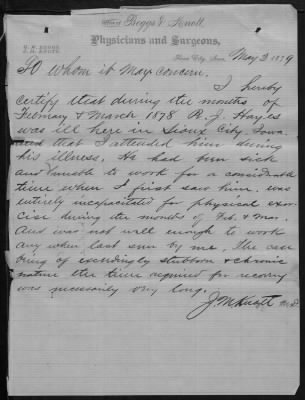 Office Beggs & Knott,
Physicians and Surgeons,
Sioux City, Iowa, May 3 1879
To whom it may concern.
I hereby
certify that during the months of
Febuary & March 1878 R. J. Hayles
was ill here in Sioux City, Iowa
and that I attended him during
his illness. He had been sick
and unable to work for a considerable
time when I first saw him. was
entirely incapacitated for physical exer-
cise during the months of Feb. & Mar.
And was not well enough to work
any when last seen by me. The case
being of exceedingly stubborn & chronic
nature the time required for recovry
was necessarily very long.
J. M. Knott M.D.